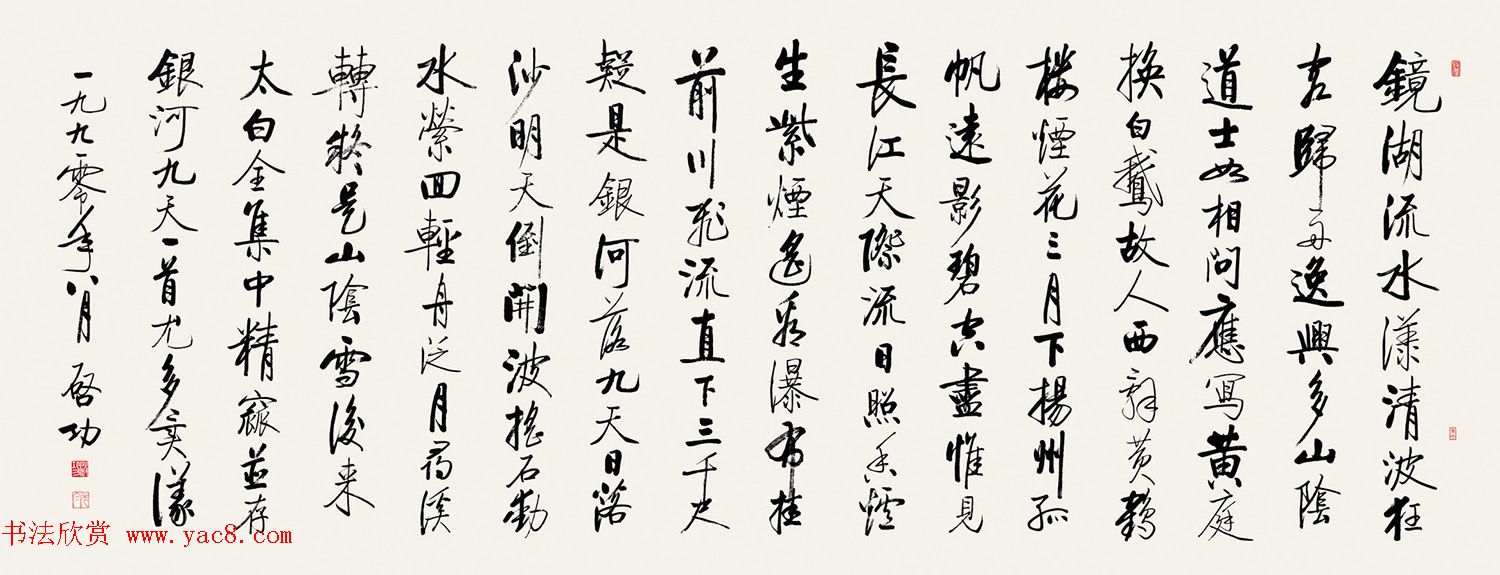 鏡湖流水漾清波狂
客歸舟逸興多山陰
道士如相問應寫黄庭
換白鵝故人西辭黄鶴
樓煙花三月下揚州孤
帆遠影碧空盡惟見
長江天際流日照香爐
生紫煙遙看瀑布挂
前川飛流直下三千尺
疑是銀河落九天日落
沙明天倒開波搖石動
水縈回輕舟泛月尋溪
轉疑是山陰雪後来
太白全集中精並存
銀河九天一首尤多
一九九零年八月 啓功
书法欣赏 www.yac8.com